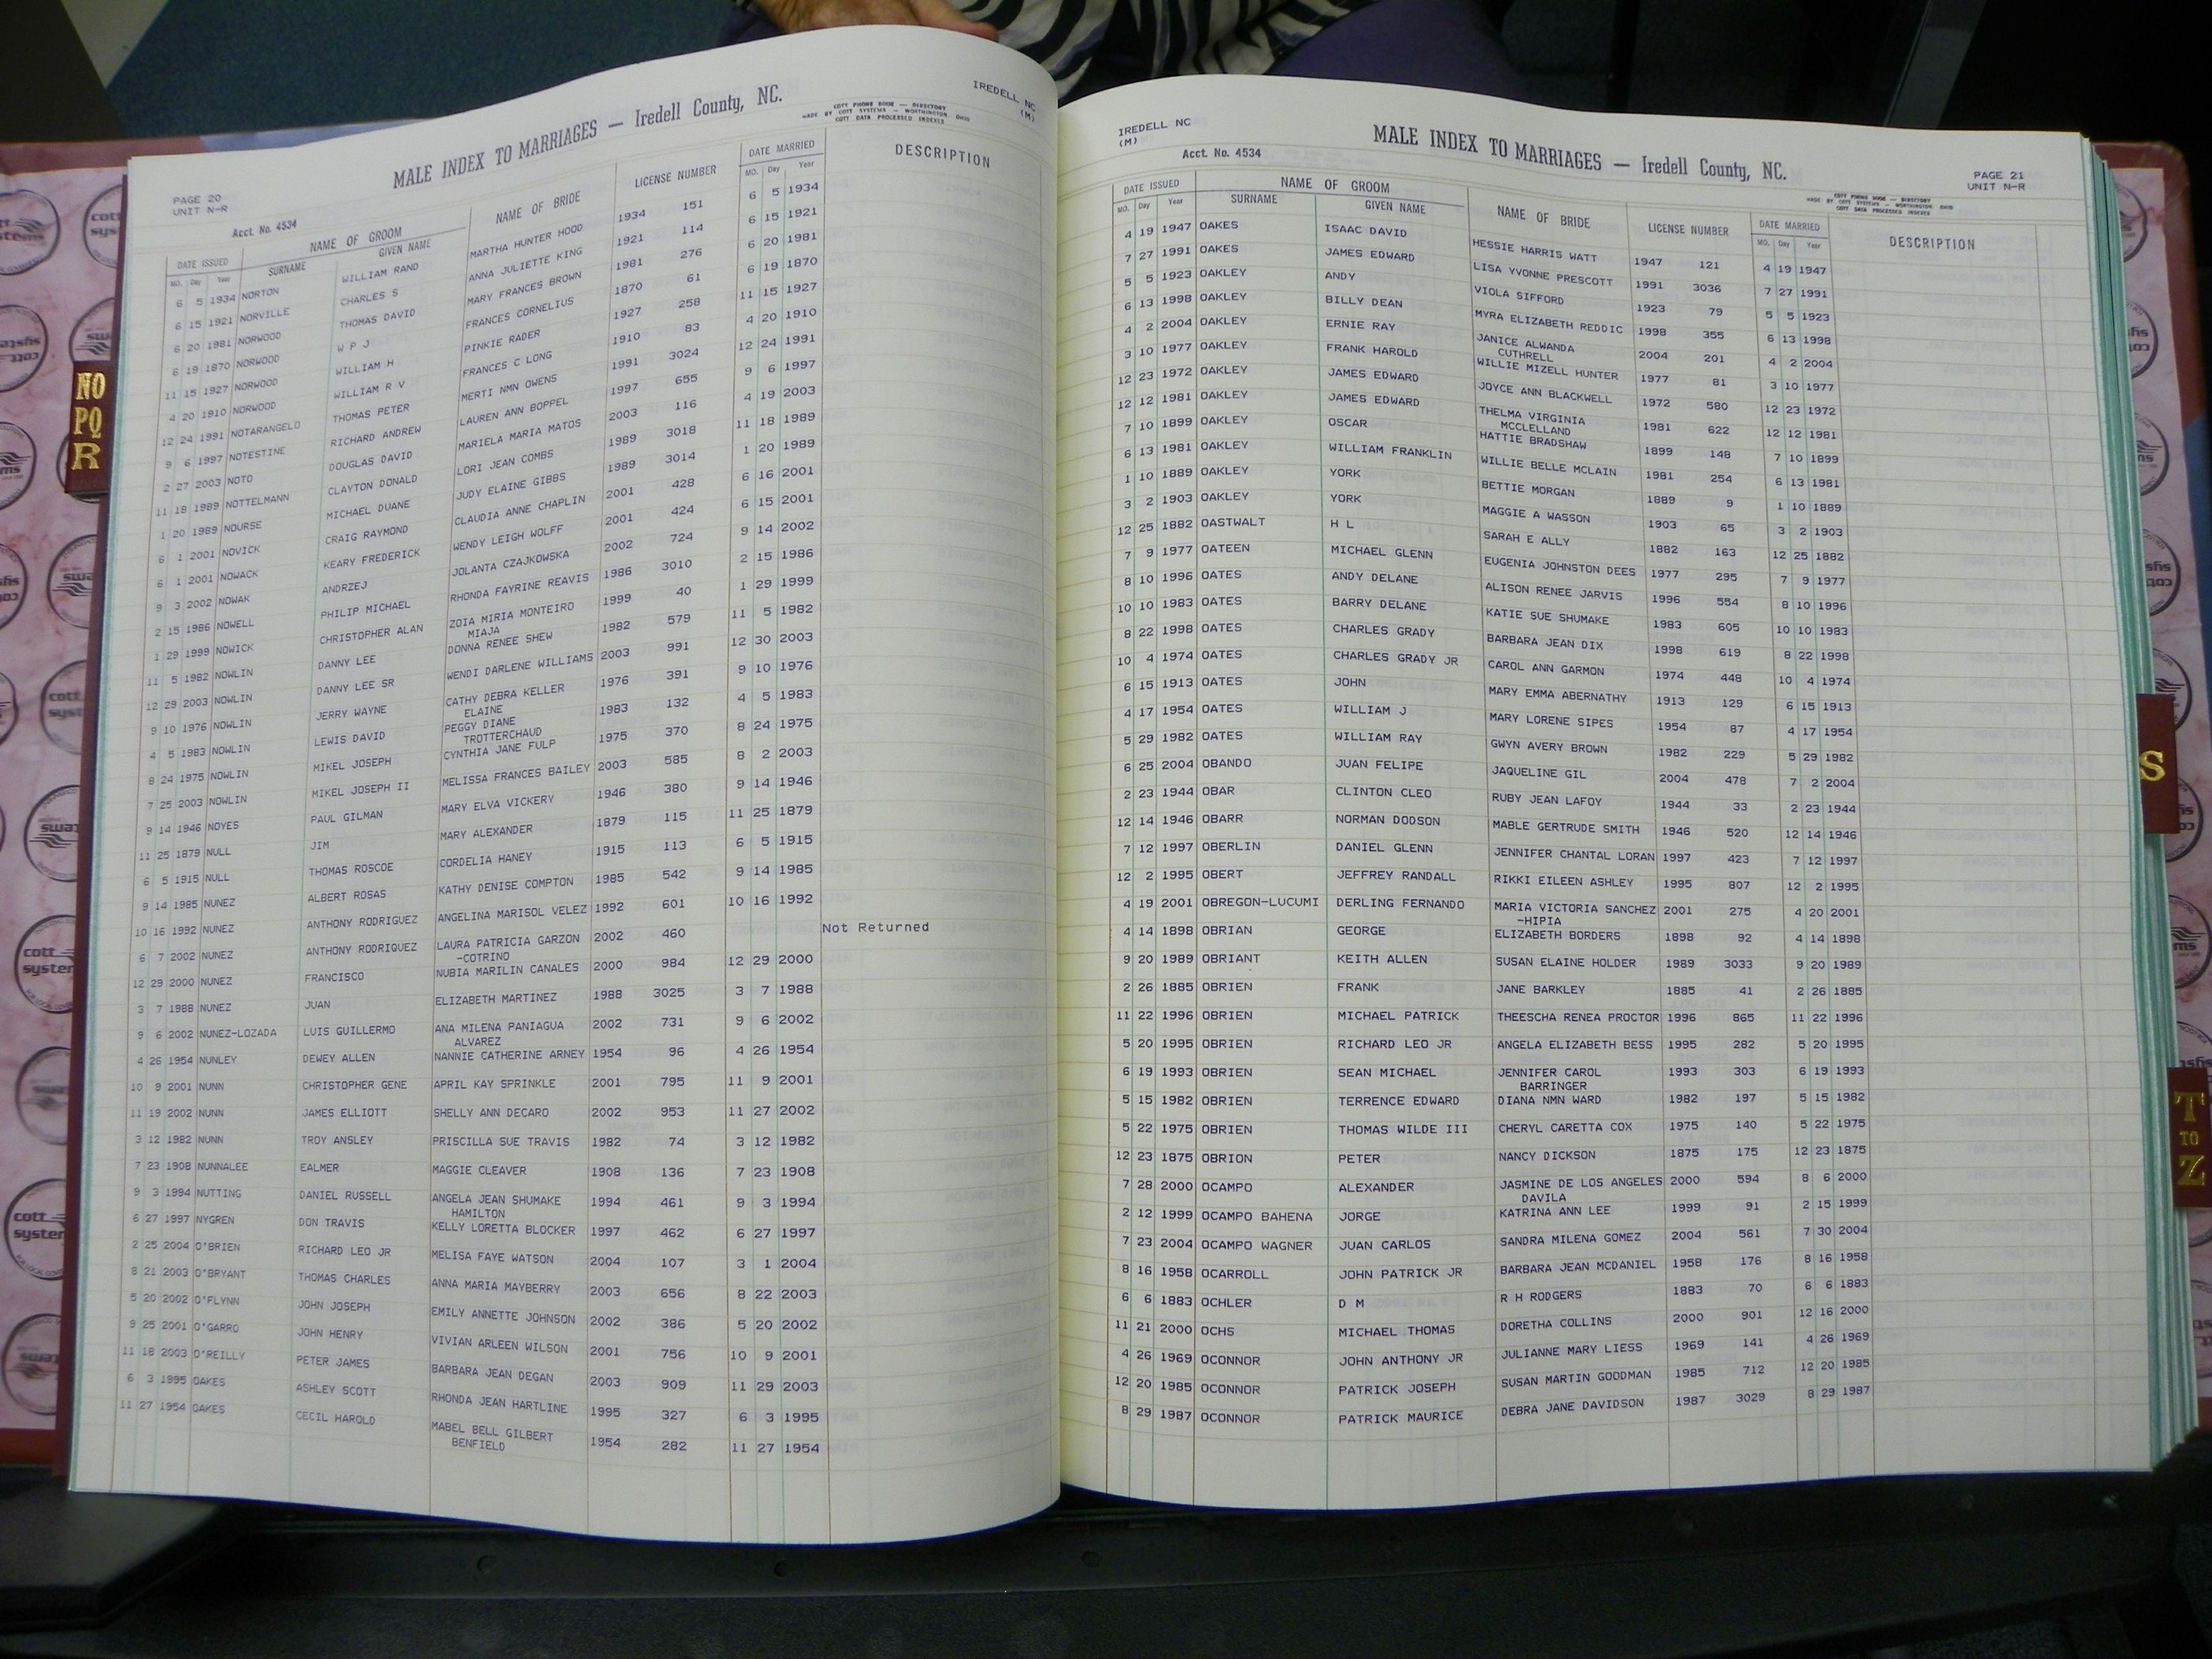 IREDELL NC
(M)
MALE INDEX TO MARRIAGES — Iredell County, NC.
COTT PHONE BOOK — DIRECTORY
MADE BY COTT SYSTEMS — WORTHINGTON, OHIO
COTT DATA PROCESSED INDEXES
PAGE 20
UNIT N-R
Acct. No. 4534
DATE ISSUED NAME OF GROOM NAME OF BRIDE LICENSE NUMBER DATE MARRIED DESCRIPTION
MO. Day Year SURNAME GIVEN NAME MO. Day Year
6 5 1934 NORTON WILLIAM RAND MARTHA HUNTER HOOD 1934 151 6 5 1934
6 15 1921 NORVILLE CHARLES S ANNA JULIETTE KING 1921 114 6 15 1921
6 20 1981 NORWOOD THOMAS DAVID MARY FRANCES BROWN 1981 276 6 20 1981
6 19 1870 NORWOOD W P J FRANCES CORNELIUS 1870 61 6 19 1870
11 15 1927 NORWOOD WILLIAM H PINKIE RADER 1927 258 11 15 1927
4 20 1910 NORWOOD WILLIAM R V FRANCES C LONG 1910 83 4 20 1910
12 24 1991 NOTARANGELO THOMAS PETER MERTI NMN OWENS 1991 3024 12 24 1991
9 6 1997 NOTESTINE RICHARD ANDREW LAUREN ANN BOPPEL 1997 655 9 6 1997
2 27 2003 NOTO DOUGLAS DAVID MARIELA MARIA MATOS 2003 116 4 19 2003
11 18 1989 NOTTELMANN CLAYTON DONALD LORI JEAN COMBS 1989 3018 11 18 1989
1 20 1989 NOURSE MICHAEL DUANE JUDY ELAINE GIBBS 1989 3014 1 20 1989
6 1 2001 NOVICK CRAIG RAYMOND CLAUDIA ANNE CHAPLIN 2001 428 6 16 2001
6 1 2001 NOWACK KEARY FREDERICK WENDY LEIGH WOLFF 2001 424 6 15 2001
9 3 2002 NOWAK ANDRZEJ JOLANTA CZAJKOWSKA 2002 724 9 14 2002
2 15 1986 NOWELL PHILIP MICHAEL RHONDA FAYRINE REAVIS 1986 3010 2 15 1986
1 29 1999 NOWICK CHRISTOPHER ALAN ZOIA MIRIA MONTEIRO 1999 40 1 29 1999
MIAJA
11 5 1982 NOWLIN DANNY LEE DONNA RENEE SHEW 1982 579 11 5 1982
12 29 2003 NOWLIN DANNY LEE SR WENDI DARLENE WILLIAMS 2003 991 12 30 2003
9 10 1976 NOWLIN JERRY WAYNE CATHY DEBRA KELLER 1976 391 9 10 1976
ELAINE
4 5 1983 NOWLIN LEWIS DAVID PEGGY DIANE 1983 132 4 5 1983
TROTTERCHAUD
8 24 1975 NOWLIN MIKEL JOSEPH CYNTHIA JANE FULP 1975 370 8 24 1975
7 25 2003 NOWLIN MIKEL JOSEPH II MELISSA FRANCES BAILEY 2003 585 8 2 2003
9 14 1946 NOYES PAUL GILMAN MARY ELVA VICKERY 1946 380 9 14 1946
11 25 1879 NULL JIM MARY ALEXANDER 1879 115 11 25 1879
6 5 1915 NULL THOMAS ROSCOE CORDELIA HANEY 1915 113 6 5 1915
9 14 1985 NUNEZ ALBERT ROSAS KATHY DENISE COMPTON 1985 542 9 14 1985
10 16 1992 NUNEZ ANTHONY RODRIGUEZ ANGELINA MARISOL VELEZ 1992 601 10 16 1992
6 7 2002 NUNEZ ANTHONY RODRIQUEZ LAURA PATRICIA GARZON 2002 460 Not Returned
-COTRINO
12 29 2000 NUNEZ FRANCISCO NUBIA MARILIN CANALES 2000 984 12 29 2000
3 7 1988 NUNEZ JUAN ELIZABETH MARTINEZ 1988 3025 3 7 1988
9 6 2002 NUNEZ-LOZADA LUIS GUILLERMO ANA MILENA PANIAGUA 2002 731 9 6 2002
ALVAREZ
4 26 1954 NUNLEY DEWEY ALLEN NANNIE CATHERINE ARNEY 1954 96 4 26 1954
10 9 2001 NUNN CHRISTOPHER GENE APRIL KAY SPRINKLE 2001 795 11 9 2001
11 19 2002 NUNN JAMES ELLIOTT SHELLY ANN DECARO 2002 953 11 27 2002
3 12 1982 NUNN TROY ANSLEY PRISCILLA SUE TRAVIS 1982 74 3 12 1982
7 23 1908 NUNNALEE EALMER MAGGIE CLEAVER 1908 136 7 23 1908
9 3 1994 NUTTING DANIEL RUSSELL ANGELA JEAN SHUMAKE 1994 461 9 3 1994
HAMILTON
6 27 1997 NYGREN DON TRAVIS KELLY LORETTA BLOCKER 1997 462 6 27 1997
2 25 2004 O'BRIEN RICHARD LEO JR MELISA FAYE WATSON 2004 107 3 1 2004
8 21 2003 O'BRYANT THOMAS CHARLES ANNA MARIA MAYBERRY 2003 656 8 22 2003
5 20 2002 O'FLYNN JOHN JOSEPH EMILY ANNETTE JOHNSON 2002 386 5 20 2002
9 25 2001 O'GARRO JOHN HENRY VIVIAN ARLEEN WILSON 2001 756 10 9 2001
11 18 2003 O'REILLY PETER JAMES BARBARA JEAN DEGAN 2003 909 11 29 2003
6 3 1995 OAKES ASHLEY SCOTT RHONDA JEAN HARTLINE 1995 327 6 3 1995
11 27 1954 OAKES CECIL HAROLD MABEL BELL GILBERT 1954 282 11 27 1954
BENFIELD
IREDELL NC
(M)
Acct. No. 4534
MALE INDEX TO MARRIAGES — Iredell County, NC.
PAGE 21
UNIT N-R
COTT PHONE BOOK — DIRECTORY
MADE BY COTT SYSTEMS — WORTHINGTON, OHIO
COTT DATA PROCESSED INDEXES
DATE ISSUED NAME OF GROOM NAME OF BRIDE LICENSE NUMBER DATE MARRIED DESCRIPTION
MO. Day Year SURNAME GIVEN NAME MO. Day Year
4 19 1947 OAKES ISAAC DAVID HESSIE HARRIS WATT 1947 121 4 19 1947
7 27 1991 OAKES JAMES EDWARD LISA YVONNE PRESCOTT 1991 3036 7 27 1991
5 5 1923 OAKLEY ANDY VIOLA SIFFORD 1923 79 5 5 1923
6 13 1998 OAKLEY BILLY DEAN MYRA ELIZABETH REDDIC 1998 355 6 13 1998
4 2 2004 OAKLEY ERNIE RAY JANICE ALWANDA 2004 201 4 2 2004
CUTHRELL
3 10 1977 OAKLEY FRANK HAROLD WILLIE MIZELL HUNTER 1977 81 3 10 1977
12 23 1972 OAKLEY JAMES EDWARD JOYCE ANN BLACKWELL 1972 580 12 23 1972
12 12 1981 OAKLEY JAMES EDWARD THELMA VIRGINIA 1981 622 12 12 1981
MCCLELLAND
7 10 1899 OAKLEY OSCAR HATTIE BRADSHAW 1899 148 7 10 1899
6 13 1981 OAKLEY WILLIAM FRANKLIN WILLIE BELLE MCLAIN 1981 254 6 13 1981
1 10 1889 OAKLEY YORK BETTIE MORGAN 1889 9 1 10 1889
3 2 1903 OAKLEY YORK MAGGIE A WASSON 1903 65 3 2 1903
12 25 1882 OASTWALT H L SARAH E ALLY 1882 163 12 25 1882
7 9 1977 OATEEN MICHAEL GLENN EUGENIA JOHNSTON DEES 1977 295 7 9 1977
8 10 1996 OATES ANDY DELANE ALISON RENEE JARVIS 1996 554 8 10 1996
10 10 1983 OATES BARRY DELANE KATIE SUE SHUMAKE 1983 605 10 10 1983
8 22 1998 OATES CHARLES GRADY BARBARA JEAN DIX 1998 619 8 22 1998
10 4 1974 OATES CHARLES GRADY JR CAROL ANN GARMON 1974 448 10 4 1974
6 15 1913 OATES JOHN MARY EMMA ABERNATHY 1913 129 6 15 1913
4 17 1954 OATES WILLIAM J MARY LORENE SIPES 1954 87 4 17 1954
5 29 1982 OATES WILLIAM RAY GWYN AVERY BROWN 1982 229 5 29 1982
6 25 2004 OBANDO JUAN FELIPE JAQUELINE GIL 2004 478 7 2 2004
2 23 1944 OBAR CLINTON CLEO RUBY JEAN LAFOY 1944 33 2 23 1944
12 14 1946 OBARR NORMAN DODSON MABLE GERTRUDE SMITH 1946 520 12 14 1946
7 12 1997 OBERLIN DANIEL GLENN JENNIFER CHANTAL LORAN 1997 423 7 12 1997
12 2 1995 OBERT JEFFREY RANDALL RIKKI EILEEN ASHLEY 1995 807 12 2 1995
4 19 2001 OBREGON-LUCUMI DERLING FERNANDO MARIA VICTORIA SANCHEZ 2001 275 4 20 2001
-HIPIA
4 14 1898 OBRIAN GEORGE ELIZABETH BORDERS 1898 92 4 14 1898
9 20 1989 OBRIANT KEITH ALLEN SUSAN ELAINE HOLDER 1989 3033 9 20 1989
2 26 1885 OBRIEN FRANK JANE BARKLEY 1885 41 2 26 1885
11 22 1996 OBRIEN MICHAEL PATRICK THEESCHA RENEA PROCTOR 1996 865 11 22 1996
5 20 1995 OBRIEN RICHARD LEO JR ANGELA ELIZABETH BESS 1995 282 5 20 1995
6 19 1993 OBRIEN SEAN MICHAEL JENNIFER CAROL 1993 303 6 19 1993
BARRINGER
5 15 1982 OBRIEN TERRENCE EDWARD DIANA NMN WARD 1982 197 5 15 1982
5 22 1975 OBRIEN THOMAS WILDE III CHERYL CARETTA COX 1975 140 5 22 1975
12 23 1875 OBRION PETER NANCY DICKSON 1875 175 12 23 1875
7 28 2000 OCAMPO ALEXANDER JASMINE DE LOS ANGELES 2000 594 8 6 2000
DAVILA
2 12 1999 OCAMPO BAHENA JORGE KATRINA ANN LEE 1999 91 2 15 1999
7 23 2004 OCAMPO WAGNER JUAN CARLOS SANDRA MILENA GOMEZ 2004 561 7 30 2004
8 16 1958 OCARROLL JOHN PATRICK JR BARBARA JEAN MCDANIEL 1958 176 8 16 1958
6 6 1883 OCHLER D M R H RODGERS 1883 70 6 6 1883
11 21 2000 OCHS MICHAEL THOMAS DORETHA COLLINS 2000 901 12 16 2000
4 26 1969 OCONNOR JOHN ANTHONY JR JULIANNE MARY LIESS 1969 141 4 26 1969
12 20 1985 OCONNOR PATRICK JOSEPH SUSAN MARTIN GOODMAN 1985 712 12 20 1985
8 29 1987 OCONNOR PATRICK MAURICE DEBRA JANE DAVIDSON 1987 3029 8 29 1987
NO
PQ
R
S
T
TO
Z
cott
systems